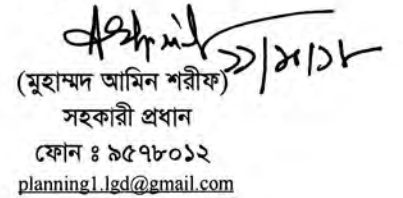 (মুহাম্মদ আমিন শরীফ)
সহকারী প্রধান
ফোন ঃ ৯৫৭৮০১২
planning1.lgd@gmail.com